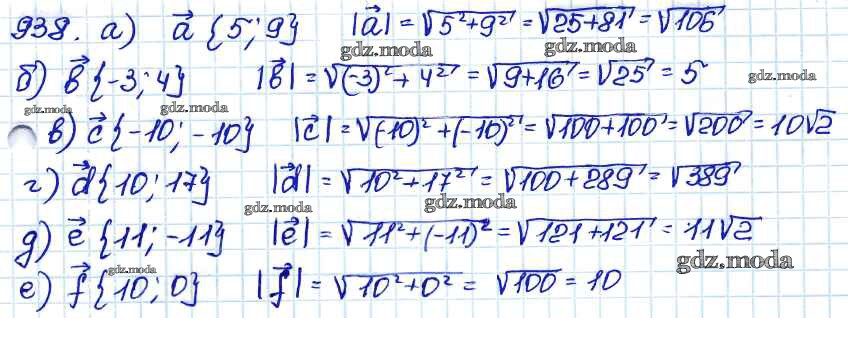 938. а) a⃗ {5; 9} |a⃗| = √(5²+9²) = √(25+81) = √106
gdz.moda gdz.moda
б) b⃗ {-3; 4} |b⃗| = √((-3)²+4²) = √(9+16) = √25 = 5
gdz.moda gdz.moda gdz.moda
в) c⃗ {-10; -10} |c⃗| = √((-10)²+(-10)²) = √(100+100) = √200 = 10√2
г) d⃗ {10; 17} |d⃗| = √(10²+17²) = √(100+289) = √389
gdz.moda gdz.moda
д) e⃗ {11; -11} |e⃗| = √(11²+(-11)²) = √(121+121) = 11√2
gdz.moda gdz.moda
е) f⃗ {10; 0} |f⃗| = √(10²+0²) = √100 = 10